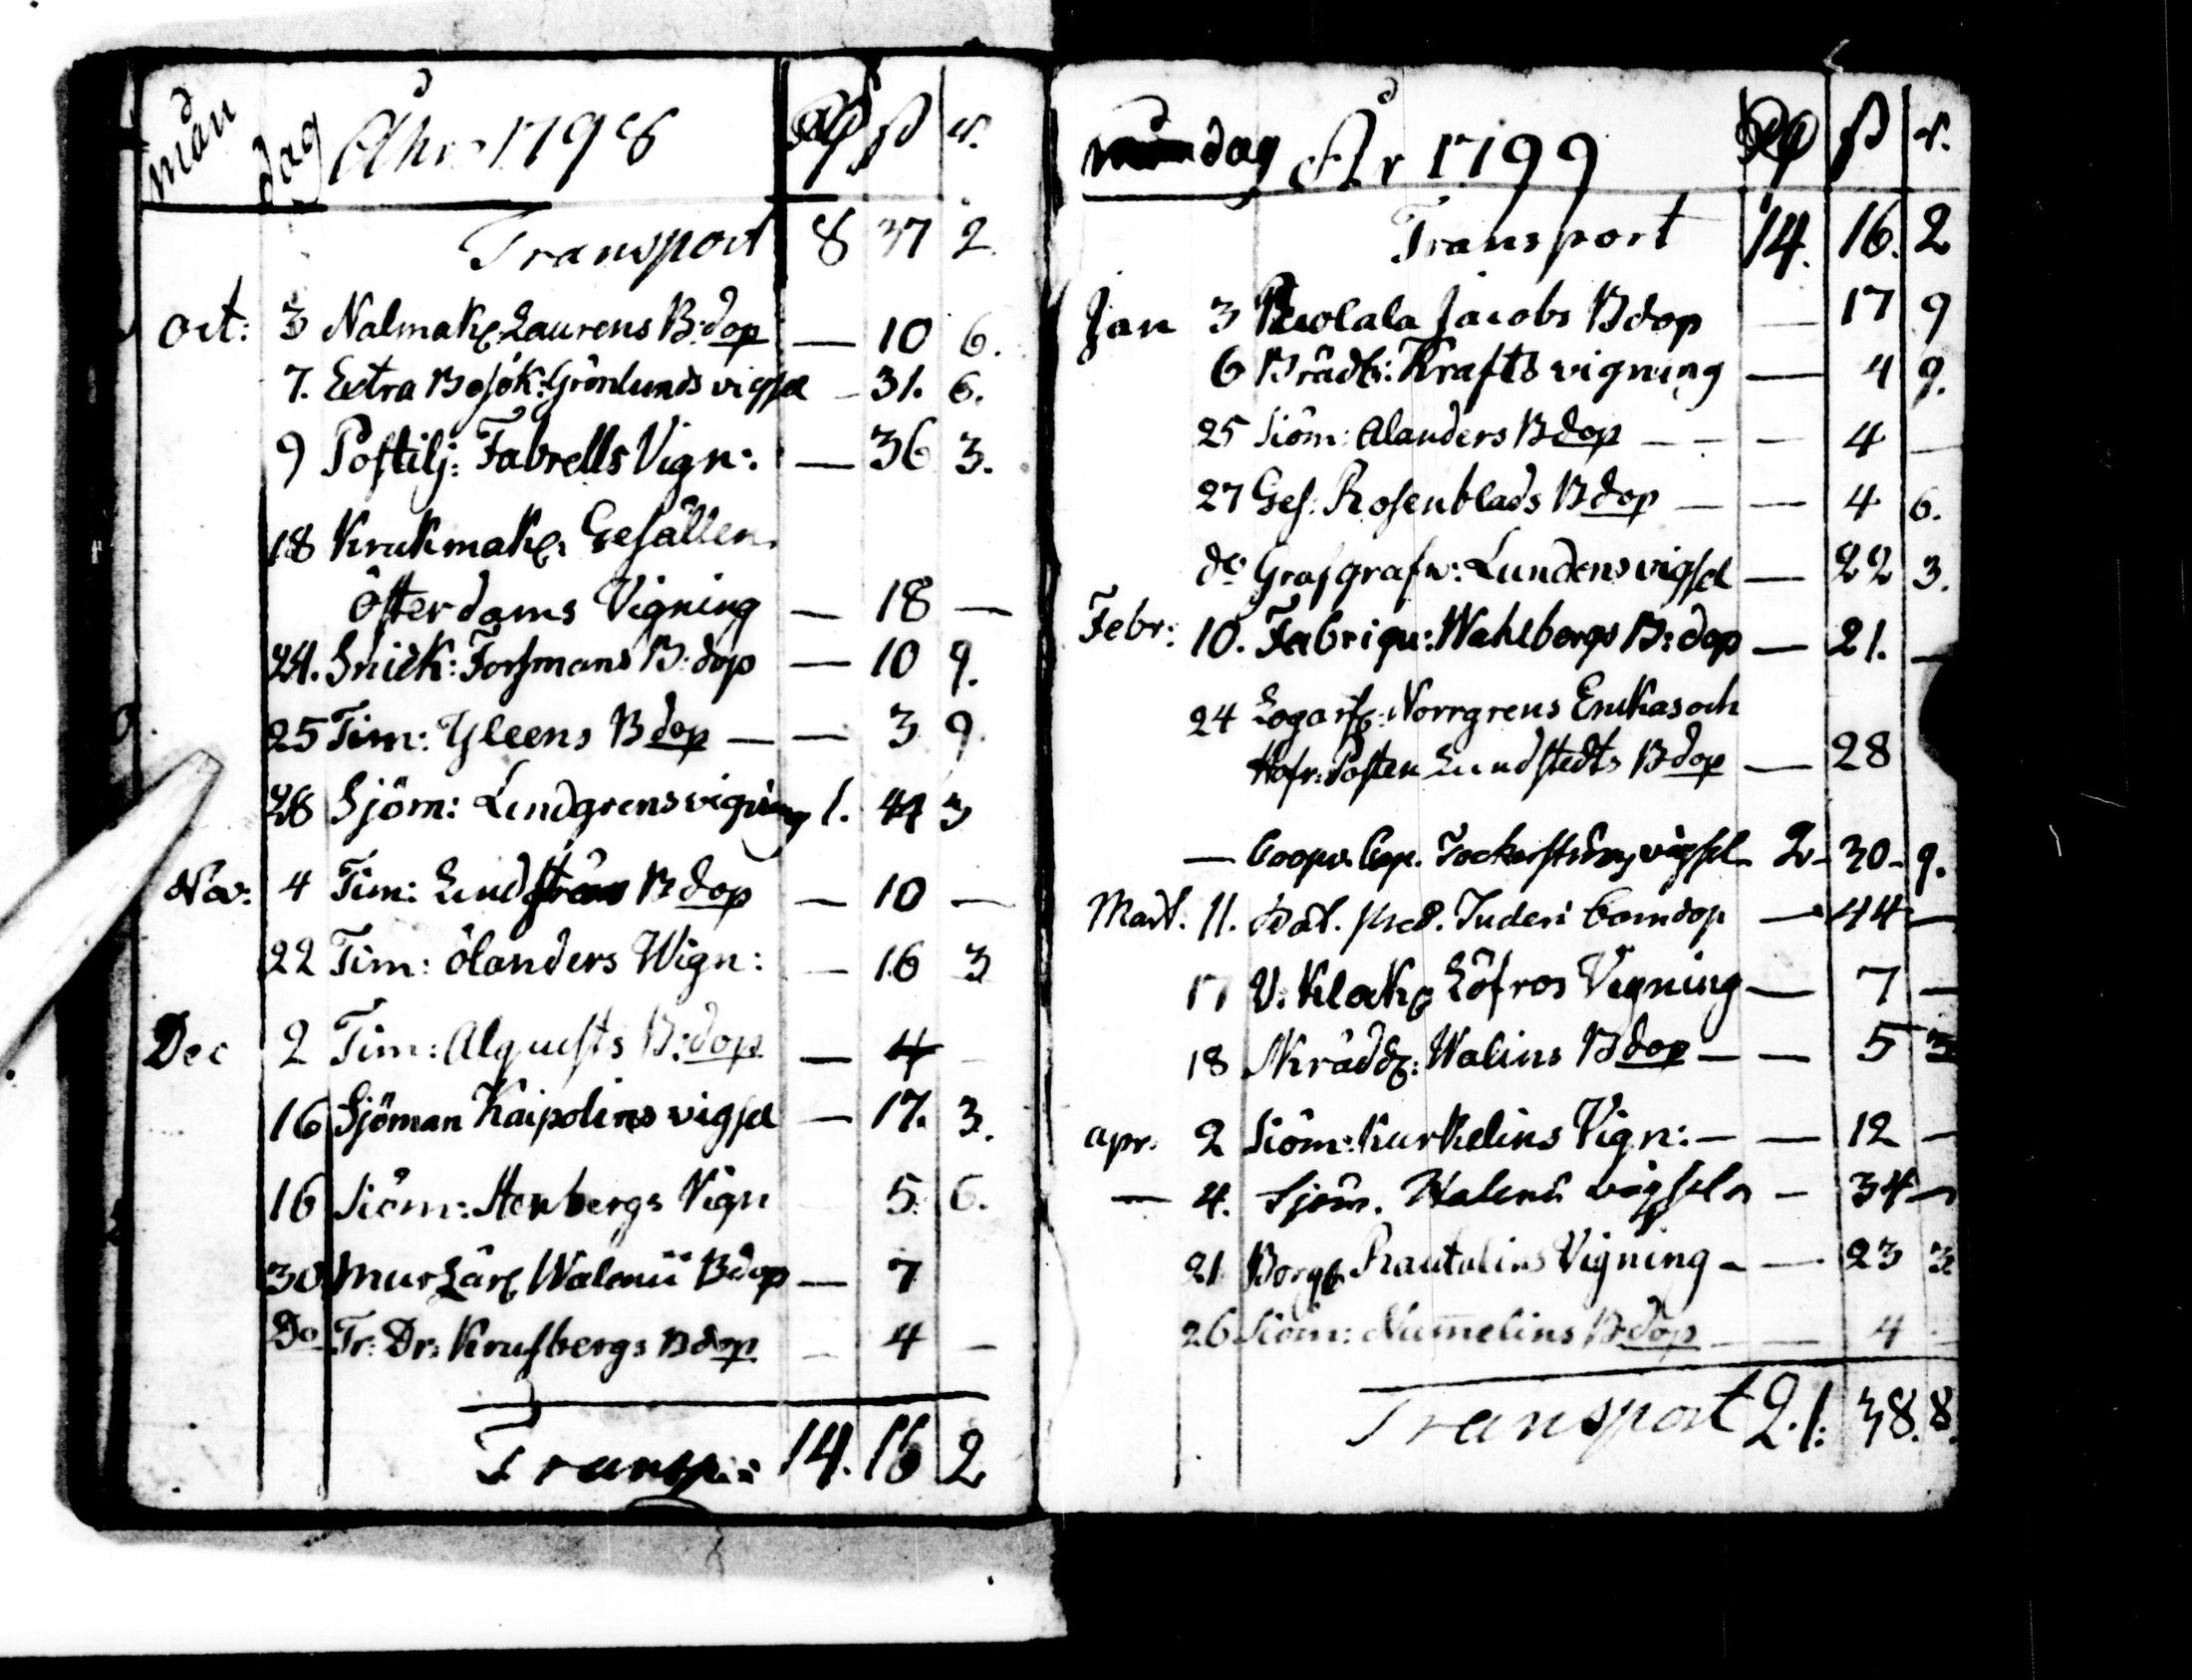 mån dag Åhr 1798 Rd ß r.
Transport 8 37 2.
Oct: 3 Nalmak: Laurens B:dop — 10 6.
7. Extra Besök: Grönlunds vigsel - 31. 6.
9 Postilj: Fabrells Vign: — 36 3.
18 Krukmak: Gesällen
Österdams Vigning — 18 —
24. Snick: Forsmans B:dop — 10 9.
25 Tim: Yleens Bdop — — 3 9.
28 Sjöm: Lindgrens vigning 1. 44 3
Nov: 4 Tim: Lindström Bdop — 10 —
22 Tim: Ölanders Wign: — 16 3
Dec 2 Tim: Alquists B:dop — 4 -
16 Sjöman Kaipolins vigsel — 17. 3.
16 Siöm: Stenbergs Vign 5 6.
30 Mur Lärl Walenii Bdop — 7
Do Tr: Dr: Krusbergs Bdop - 4 —
Transp: 14. 16 2
dag År 1799 Rd ß r.
Transport 14. 16. 2
Jan 3 Puolala Jacobs Bdop — 17 9
6 Krafts vigning — 4 9.
25 Siöm: Alanders Bdop — — — 4 —
27 Ges: Rosenblads Bdop — — 4 6.
do Grafgrafw: Lundens vigsel — 22 3.
Febr: 10. Fabriqu: Wahlbergs B:dop — 21. —
24 Norrgrens Enkas och
Lundstedts Bdop — 28
— vigsel 2. 30. 9.
Mart. 11. Bat. pred. Juderi barndop — 44 —
17 Löfros Vigning — 7 —
18 Skrädd: Walins Bdop — — 5 3
apr. 2 Siöm: Kurkelins Vign: — — 12 —
— 4. Sjöm. Walenii vigseln — 34 —
21 Borg: Rautalins Vigning - — 23 3
26 Siöm: Num̅elins Bdop — — 4 -
Transport 21: 38. 8.